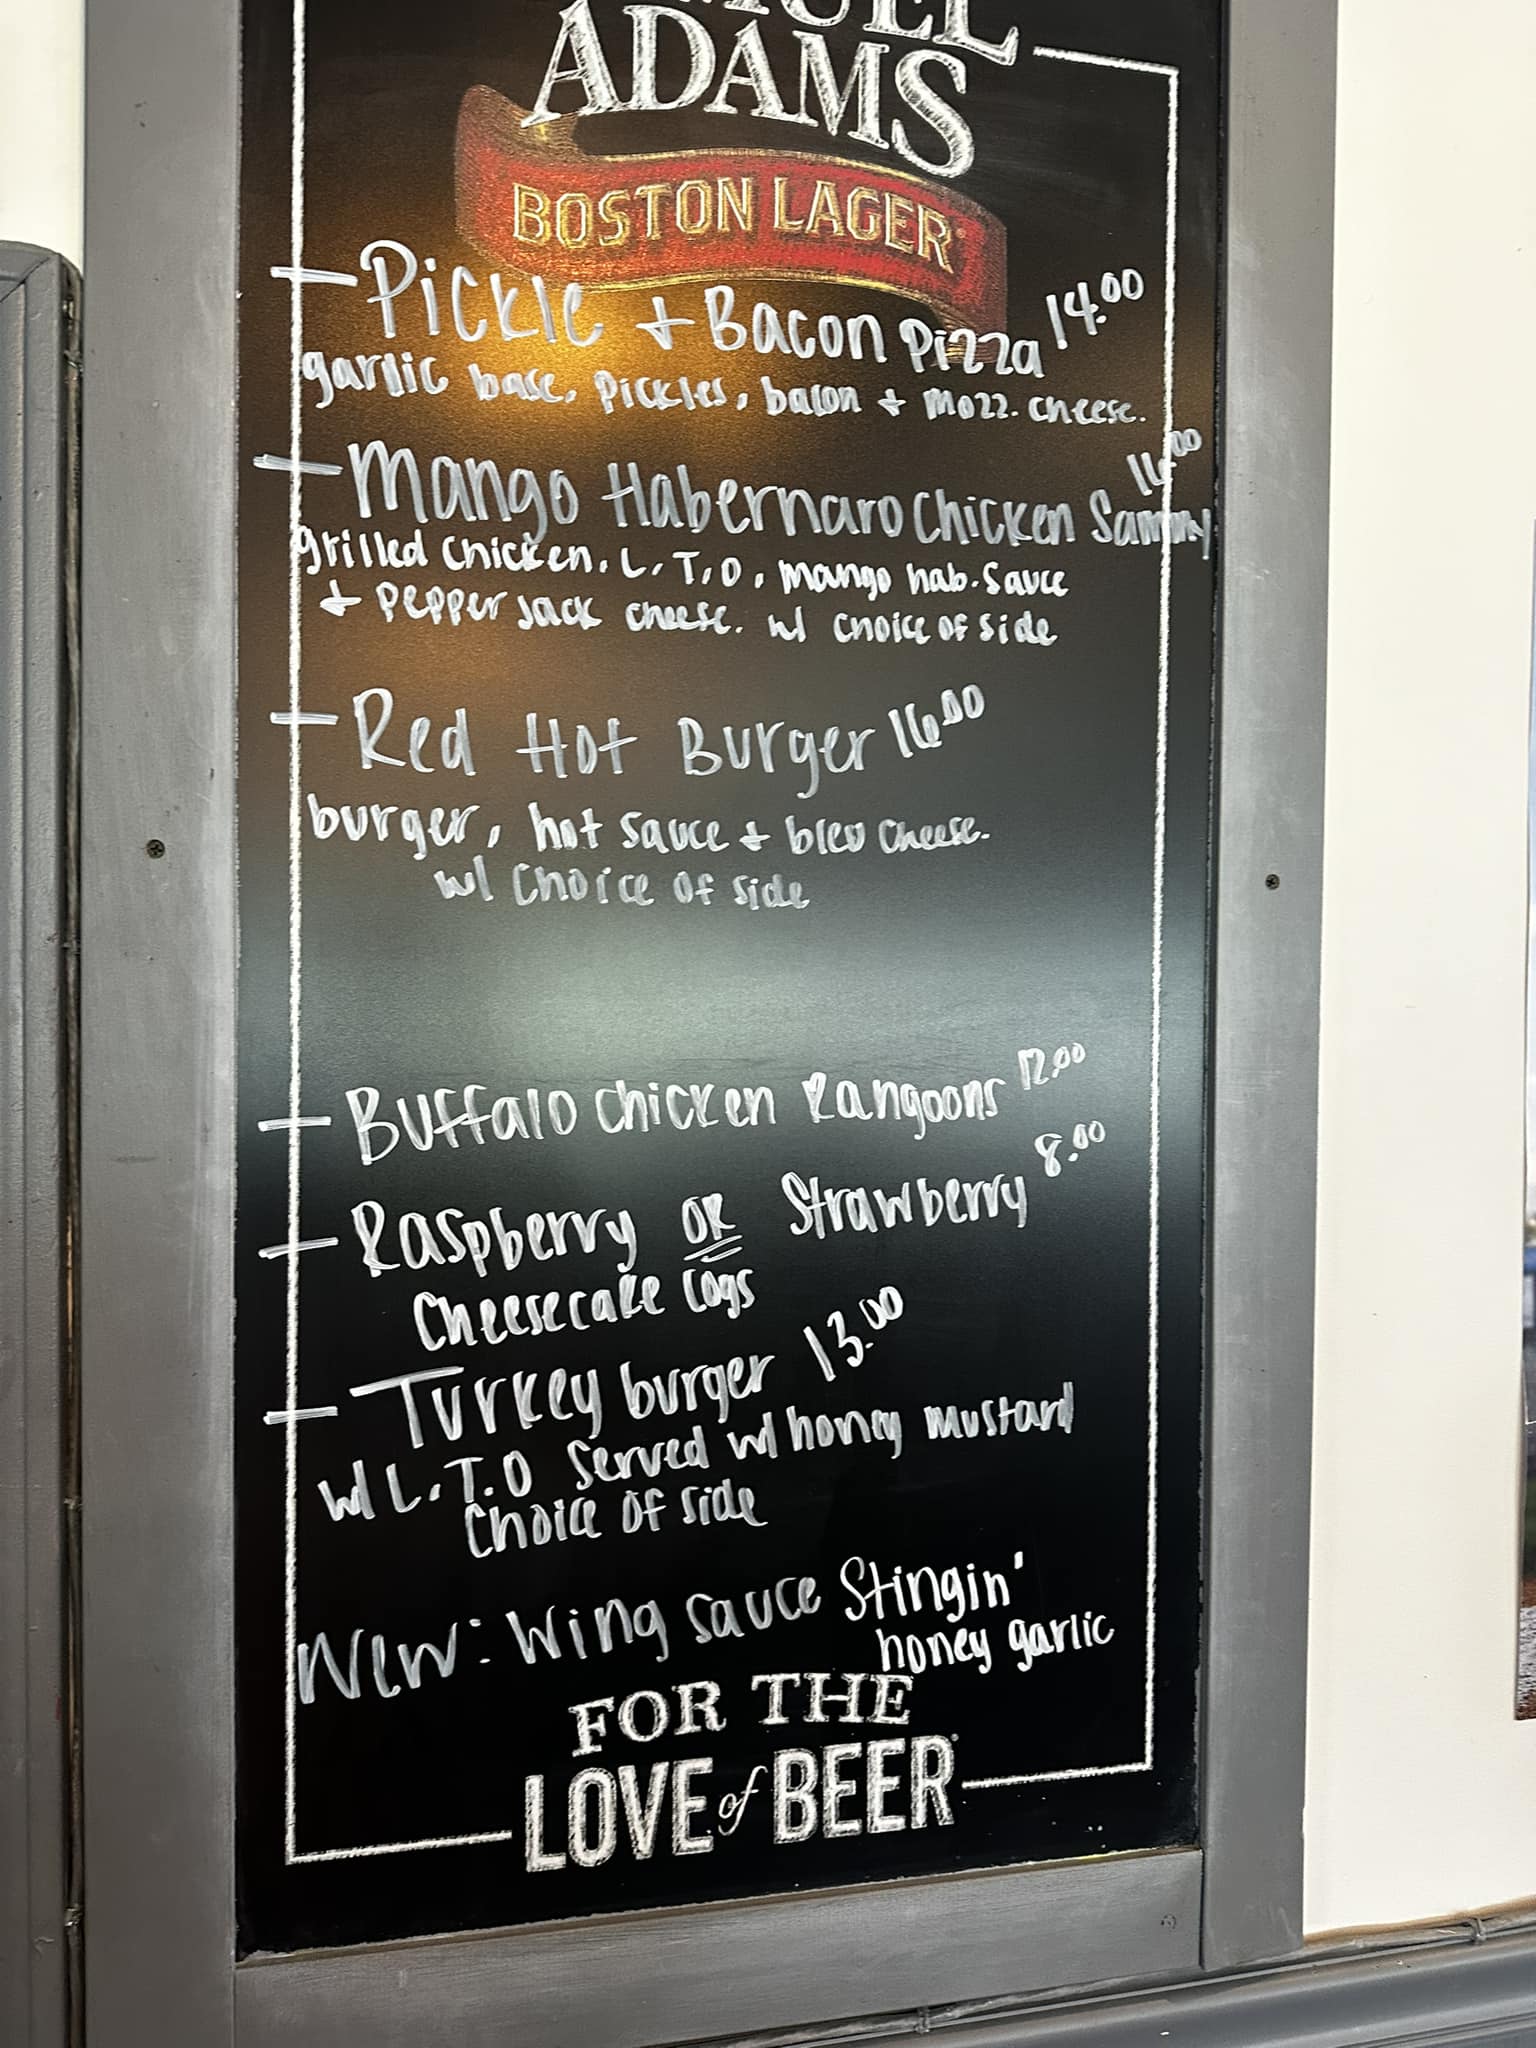 ADAMS
BOSTON LAGER
- Pickle + Bacon Pizza 14.00
garlic base, pickles, bacon + mozz. cheese.
- Mango Habernaro Chicken Sammy 16.00
grilled chicken, L, T, O, mango hab. sauce
+ pepper jack cheese. w/ choice of side
- Red Hot Burger 16.00
burger, hot sauce + bleu cheese.
w/ choice of side
- Buffalo chicken Rangoons 12.00
- Raspberry OR Strawberry 8.00
Cheesecake Logs
- Turkey burger 13.00
w/ L.T.O served w/ honey mustard
Choice of side
New: Wing sauce Stingin'
honey garlic
FOR THE
LOVE of BEER